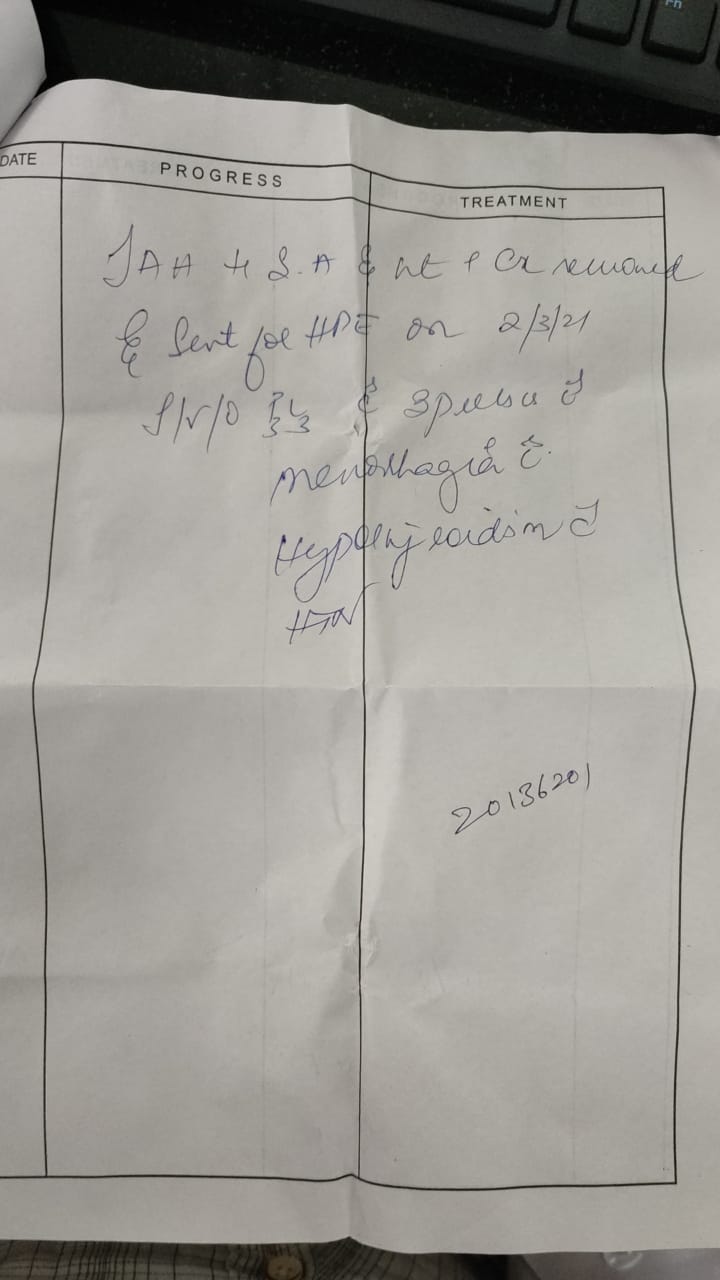 DATE PROGRESS TREATMENT
TAH + S.A & ut & Cx removed
& Sent for HPE on 2/3/21
I/V/O P3L3 3 prev
menorrhagia c̄
Hypothyroidism c̄
HTN
20136201